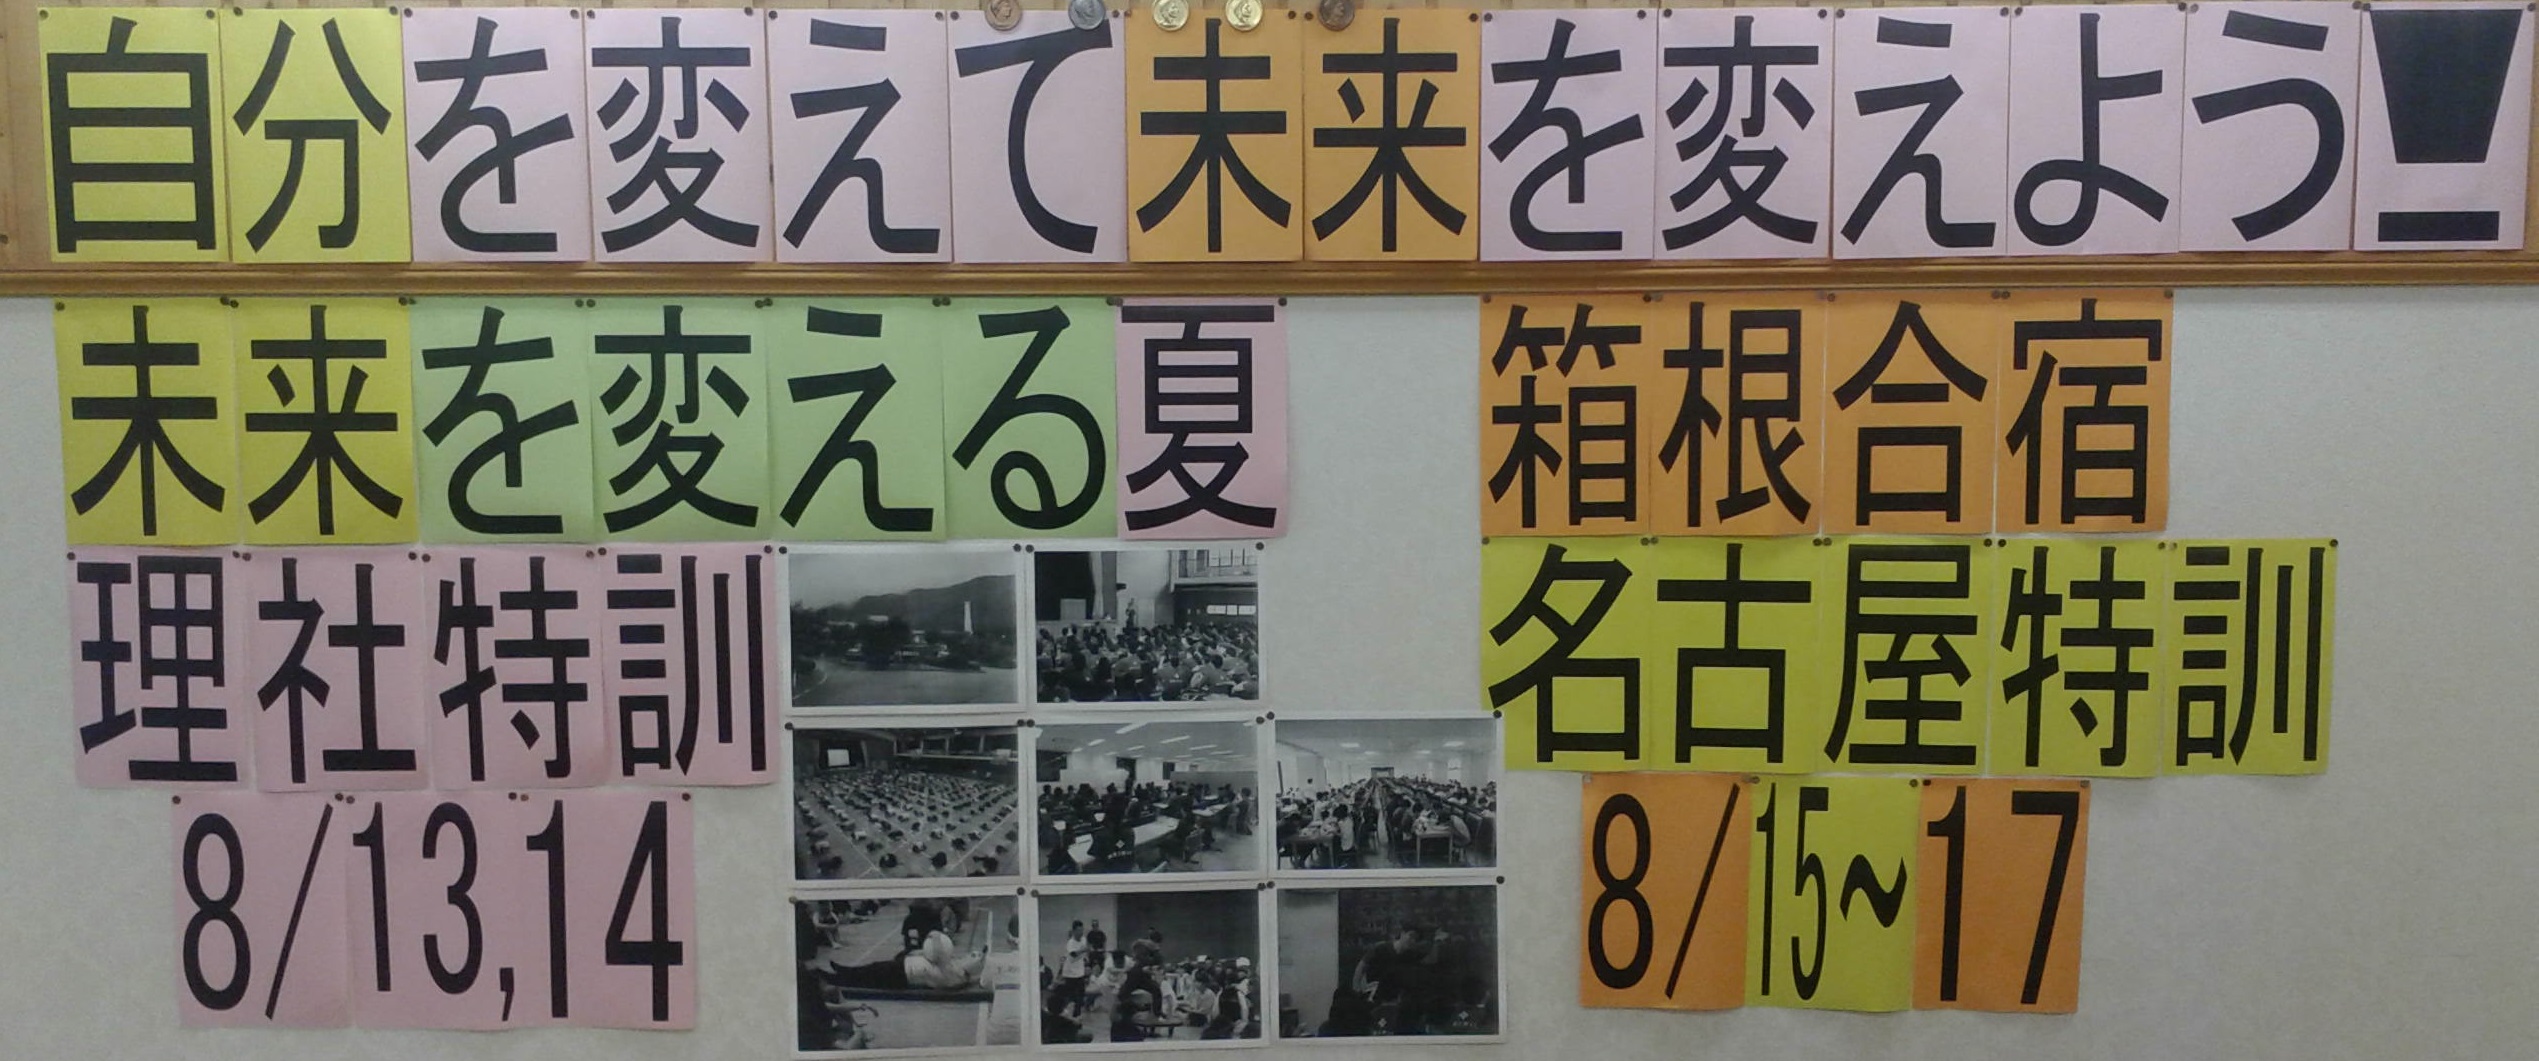 自分を変えて未来を変えよう!
未来を変える夏
理社特訓
8/13,14
箱根合宿
名古屋特訓
8/15~17